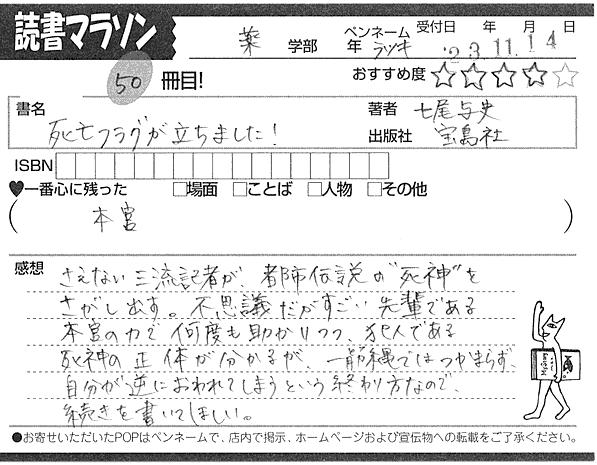 読書マラソン
薬 学部 年 ペンネーム ラッキ 受付日 年 月 日
'23.11.14
50 冊目! おすすめ度
書名 著者 七尾与史
死亡フラグが立ちました! 出版社 宝島社
ISBN
♥一番心に残った □場面 □ことば □人物 □その他
( 本宮 )
感想
さえない三流記者が、都市伝説の"死神"を
さがし出す。不思議だがすごい先輩である
本宮の力で何度も助かりつつ、犯人である
死神の正体が分かるが、一筋縄ではつかまらず、
自分が逆におわれてしまうという終わり方なので、
続きを書いてほしい。
●お寄せいただいたPOPはペンネームで、店内で掲示、ホームページおよび宣伝物への転載をご了承ください。